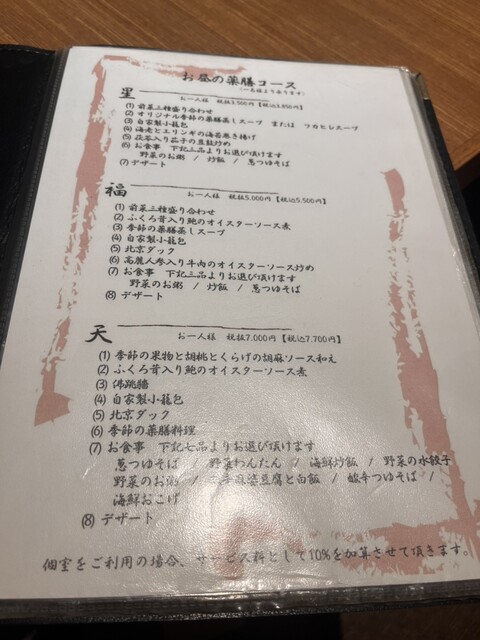 お昼の薬膳コース
(一名様より承ります)
星 お一人様 税抜3,500円【税込3,850円】
(1) 前菜三種盛り合わせ
(2) オリジナル季節の薬膳蒸しスープ または フカヒレスープ
(3) 自家製小籠包
(4) 海老とエリンギの海苔巻き揚げ
(5) 茯苓入り茄子の豆鼓炒め
(6) お食事 下記三品よりお選び頂けます
野菜のお粥 / 炒飯 / 葱つゆそば
(7) デザート
福 お一人様 税抜5,000円【税込5,500円】
(1) 前菜三種盛り合わせ
(2) ふくろ茸入り鮑のオイスターソース煮
(3) 季節の薬膳蒸しスープ
(4) 自家製小籠包
(5) 北京ダック
(6) 高麗人参入り牛肉のオイスターソース炒め
(7) お食事 下記三品よりお選び頂けます
野菜のお粥 / 炒飯 / 葱つゆそば
(8) デザート
天 お一人様 税抜7,000円【税込7,700円】
(1) 季節の果物と胡桃とくらげの胡麻ソース和え
(2) ふくろ茸入り鮑のオイスターソース煮
(3) 佛跳牆
(4) 自家製小籠包
(5) 北京ダック
(6) 季節の薬膳料理
(7) お食事 下記七品よりお選び頂けます
葱つゆそば / 野菜わんたん / 海鮮炒飯 / 野菜の水餃子
野菜のお粥 / 麻婆豆腐と白飯 / つゆそば /
海鮮おこげ
(8) デザート
個室をご利用の場合、サービス料として10%を加算させて頂きます。